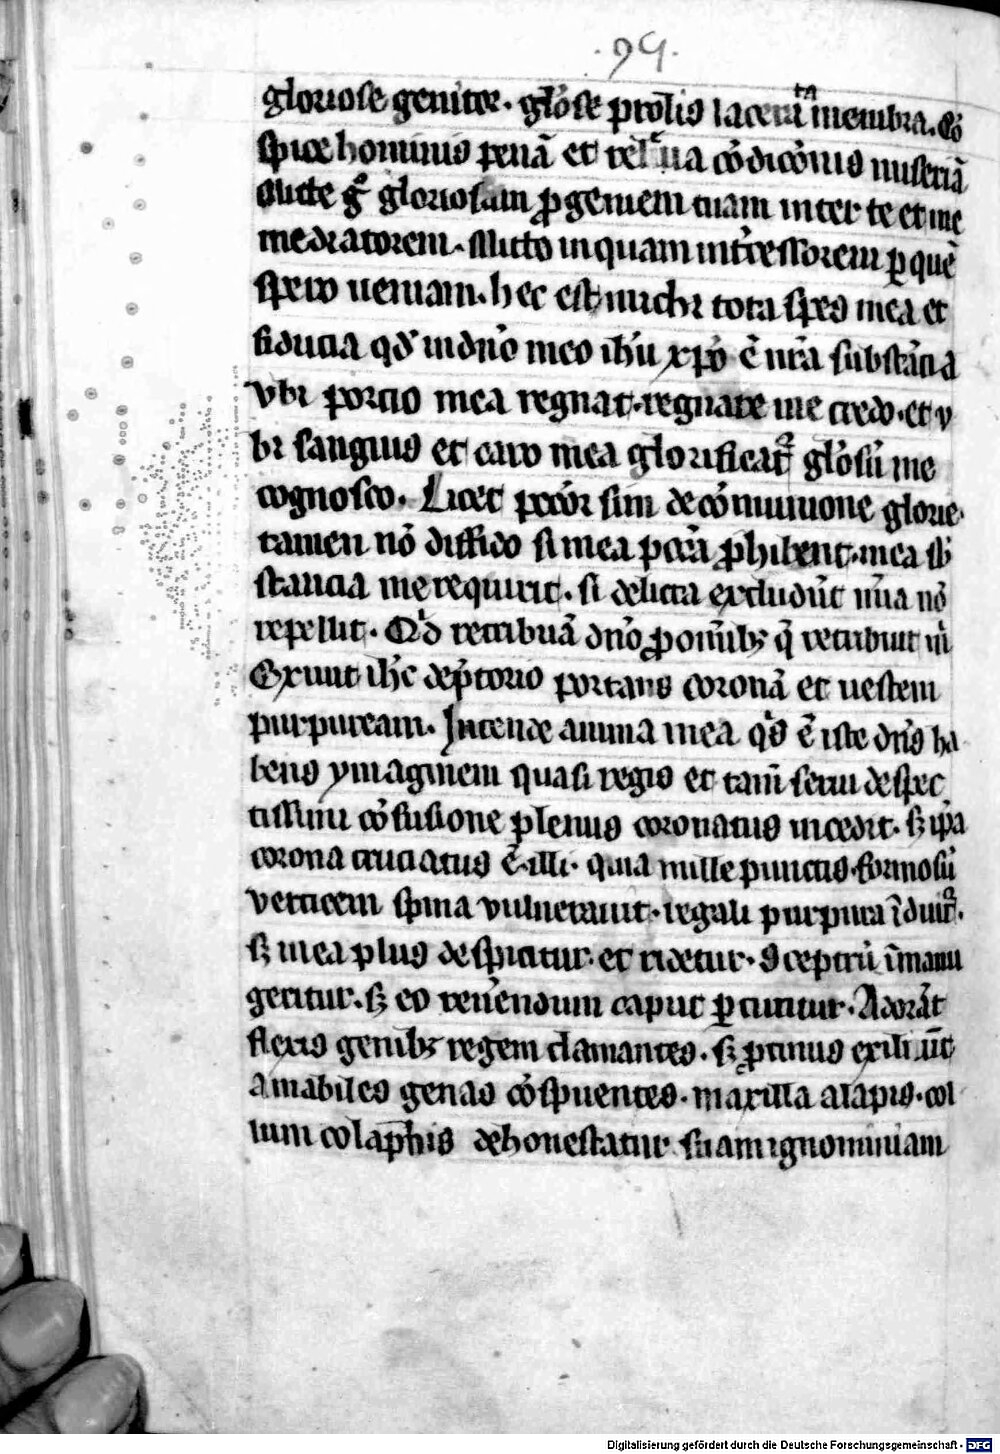 .95.
gloriose genitor. gło̅se prol̅is lacerata membra. co̅
spice hominis pena̅ et rel̅eua co̅dico̅nis miseria̅
Mitte gͦ gloriosam ꝓgeniem tuam inter te et me
mediatorem. Mitto inquam int̅cessorem ꝑ que̅
spero ueniam. hec est michi tota spes mea et
fiducia qd̅ in dn̅o meo ihu̅ xp̅o e̅ nr̅a substa̅cia
vbi porcio mea regnat. regnare me credo. et v
bi sanguis et caro mea glorificat᷑ glo̅su̅ me
cognosco. Licet pcc̅or sim de co̅muniione glorie.
tamen no̅ diffido si mea pcc̅a ꝓhibent. mea sb̅
stancia me requirit. si delicta excludu̅t mi̅a no̅
repellit. Qͥd retribua̅ dn̅o ꝓ omi̅bꝫ q̅ retribuit m̅
Exiuit ihc̅ de p̅torio portans corona̅ et uestem
purpuream. Intende anima mea qͥs e̅ iste dn̅s ha
bens ymaginem quasi regis et tam̅ serui despec
tissimi co̅fusione plenus coronatus incedit. sꝫ ip̅a
corona cruciatus e̅ illi. quia mille punctis formosu̅
verticem spina vulnerauit. regali purpura i̅duit᷑.
sꝫ mea plus despicitur et ridetur. Sceptru̅ i̅ manu
geritur. sꝫ eo reue̅endum caput ꝑcutitur. Adora̅t
flexis genibꝫ regem clamantes. sꝫ ꝓtinus exiliu̅t
amabiles genas co̅spuentes. maxilla alapis. col
lum colaphis dehonestatur suam ignominiam
Digitalisierung gefördert durch die Deutsche Forschungsgemeinschaft - DFG